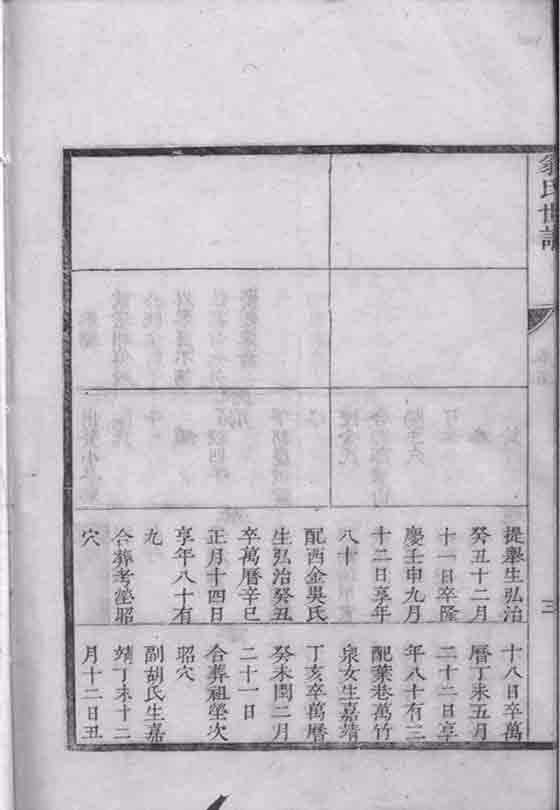 翁氏世譜
三
提舉生弘治
癸丑十二月
十一日卒隆
慶壬申九月
十二日享年
八十
配西金吳氏
生弘治癸丑
卒萬曆辛巳
正月十四日
享年八十有
九
合葬考塋昭
穴
十八日卒萬
曆丁未五月
二十二日享
年八十有三
配葉巷萬竹
泉女生嘉靖
丁亥卒萬曆
癸未閏二月
二十一日
合葬祖塋次
昭穴
副胡氏生嘉
靖丁未十二
月十二日丑